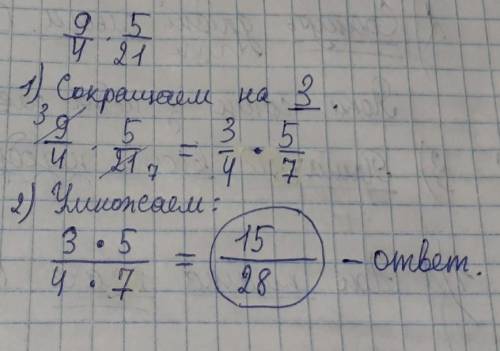 9/4 · 5/21
1) Сокращаем на 3.
³9/4 · 5/21 ₇ = 3/4 · 5/7
2) Умножаем:
3 · 5 / 4 · 7 = 15/28 - ответ.